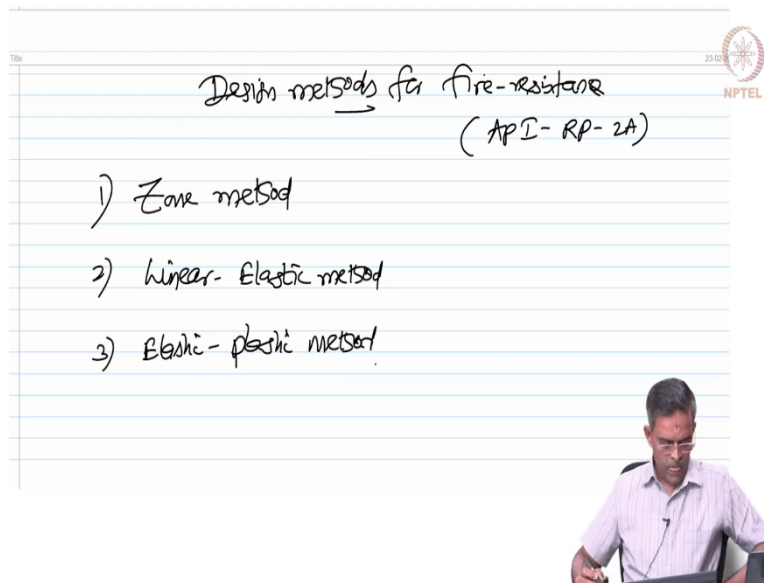 Title
NPTEL
Design methods for fire-resistance
(API-RP-2A)
1) Zone method
2) Linear-Elastic method
3) Elastic-plastic method